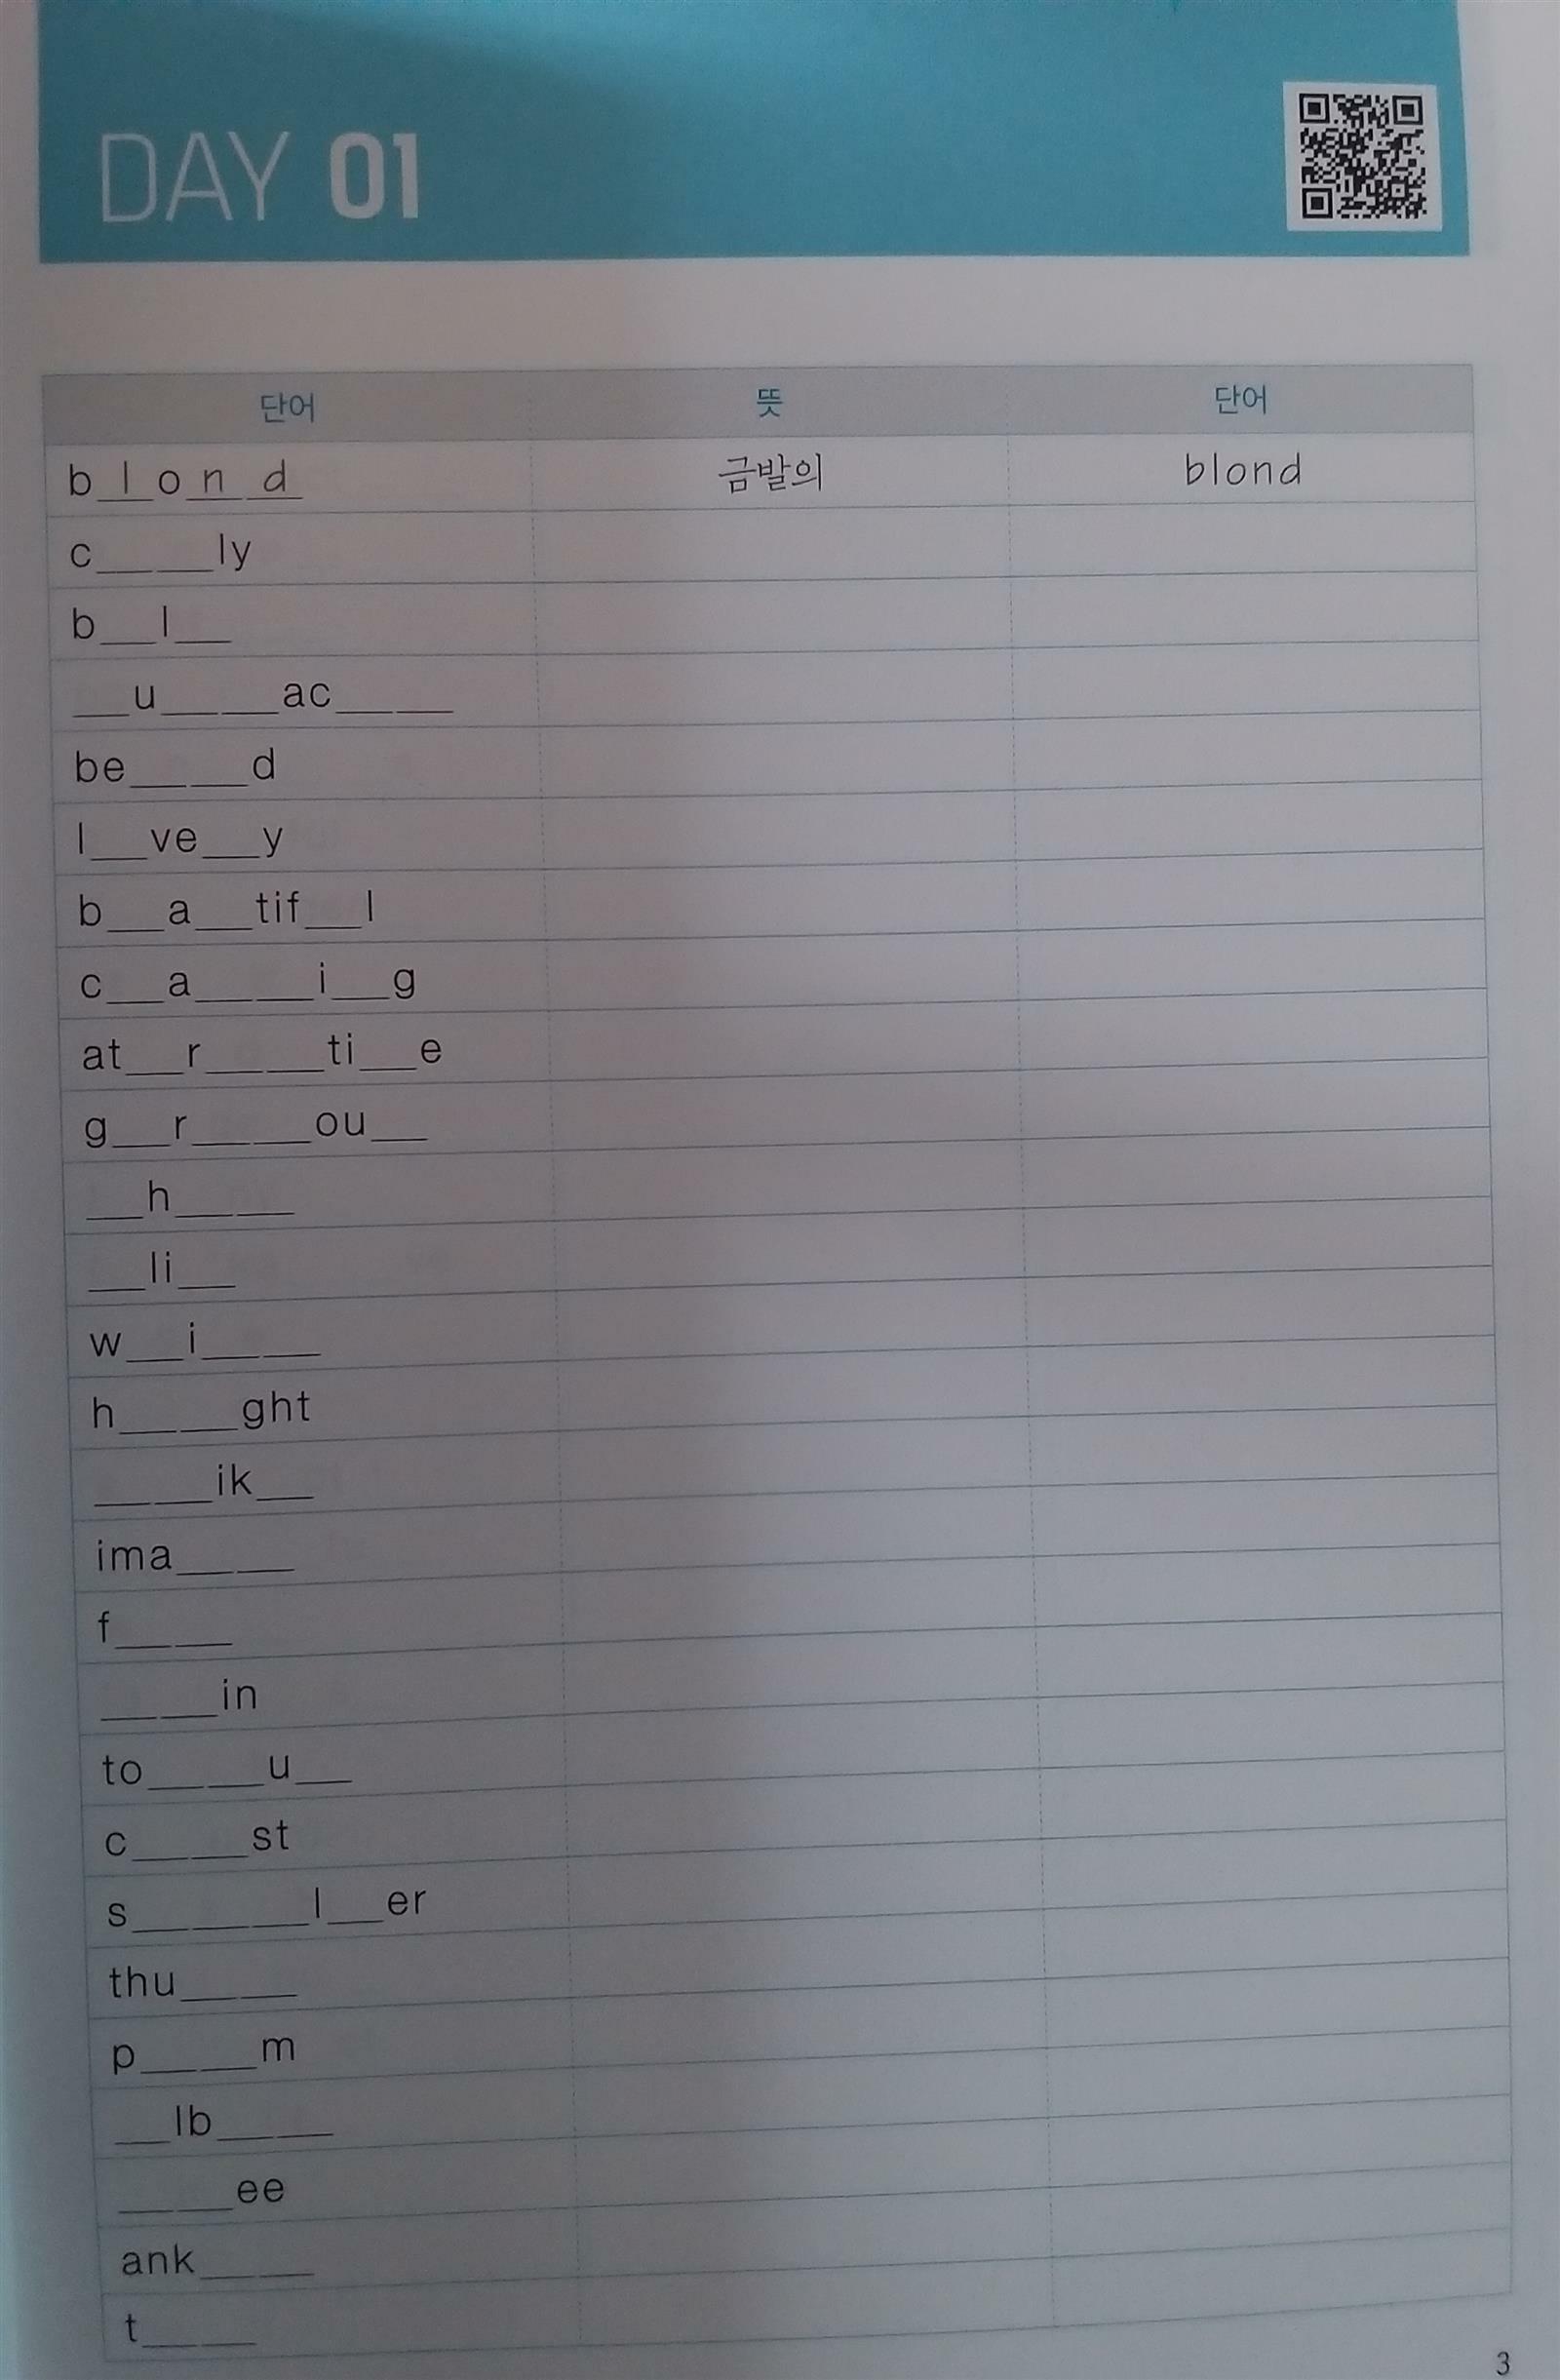 DAY 01
단어 뜻 단어
b l o n d 금발의 blond
c__ __ly
b__l__
__u__ __ac__ __
be__ __d
l__ve__y
b__a__tif__l
c__a__ __i__g
at__r__ __ti__e
g__r__ __ou__
__h__ __
__li__
w__i__ __
h__ __ght
__ __ik__
ima__ __
f__ __
__ __in
to__ __u__
c__ __st
s__ __ __l__er
thu__ __
p__ __m
__lb__ __
__ __ee
ank__ __
t__ __
3